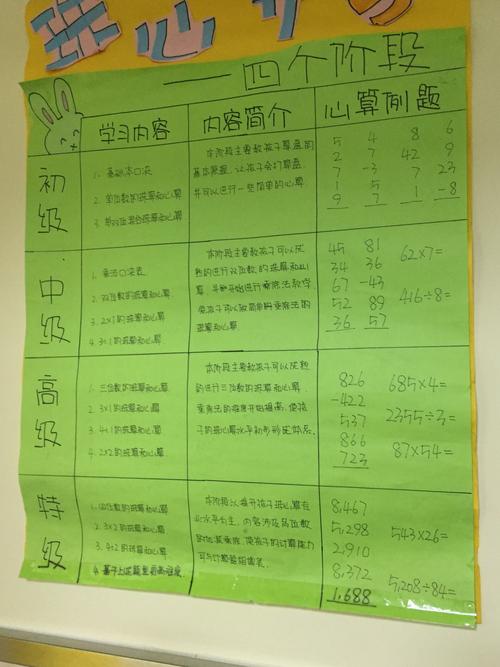 珠心算
——四个阶段
学习内容
内容简介
心算例题
初级
1. 基础本口诀
2. 单位数的珠算和心算
3. 单双位混合珠算和心算
本阶段主要教孩子算盘的
基本掌握，让孩子会打算盘，
并可以进行一些简单的心算.
5 4 8 6
2 7 42 9
7 -3 7 23
1 5 1 -8
9 7
中级
1. 乘法口诀表.
2. 双位数的珠算和心算
3. 2×1的珠算和心算
4. 3÷1的珠算和心算
本阶段主要教孩子可以成
熟的进行双位数的珠算和心
算，并开始进行乘除法教学，
使孩子可以做简单的乘除法的
珠算和心算.
45 81
34 36
67 -43
52 89
36 57
62×7=
416÷8=
高级
1. 三位数的珠算和心算
2. 3×1的珠算和心算
3. 4÷1的珠算和心算
4. 2×2的珠算和心算
本阶段主要教孩子可以成熟
的进行三位数的珠算和心算，
乘除法的难度开始提高，使孩
子的珠心算水平初步形成体系.
826
-422
537
866
723
685×4=
2355÷3=
87×54=
特级
1. 四位数的珠算和心算
2. 3×2的珠算和心算
3. 4÷2的珠算和心算
4. 基于上述题型
本阶段以提升孩子珠心算专
业水平为主，内容涉及多位数
的加减乘除，使孩子的计算能力
可与计算器相媲美.
8,467
5,298
2,910
8,372
1,688
543×26=
5,208÷84=